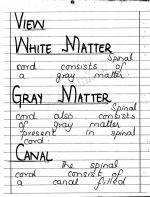 VIEW
WHITE MATTER
Spinal
cord consists of
a gray matter.
GRAY MATTER
Spinal
cord also consists
of gray matter
present in spinal
cord.
CANAL
The spinal
cord consist of
a canal filled